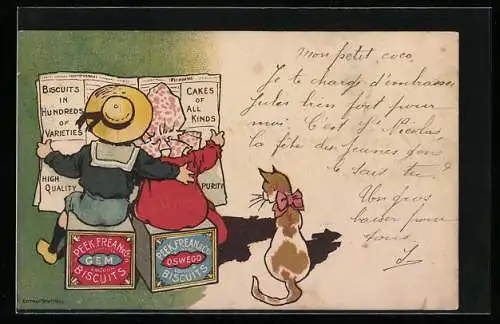 BISCUITS
IN
HUNDREDS
OF
VARIETIES
HIGH
QUALITY
CAKES
OF
ALL
KINDS
PURITY
PEEK, FREAN & Co's
GEM
BISCUITS
PEEK, FREAN & Co's
OSWEGO
BISCUITS
Mon petit coco
Je te charge d'embrasser
Jules bien fort pour
moi. C'est St Nicolas
la fête des jeunes gens
le sais tu?
Un gros
baiser pour
tous.
J